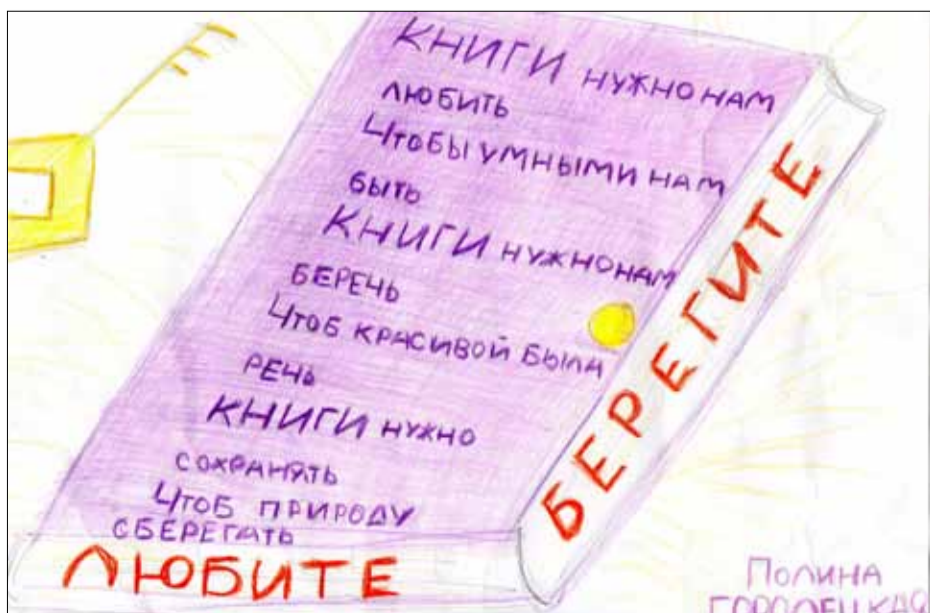 КНИГИ НУЖНО НАМ
ЛЮБИТЬ
ЧТОБЫ УМНЫМИ НАМ
БЫТЬ
КНИГИ НУЖНО НАМ
БЕРЕЧЬ
ЧТОБ КРАСИВОЙ БЫЛА
РЕЧЬ
КНИГИ НУЖНО
СОХРАНЯТЬ
ЧТОБ ПРИРОДУ
СБЕРЕГАТЬ
ЛЮБИТЕ
БЕРЕГИТЕ
ПОЛИНА
ГОРОДЕЦКАЯ